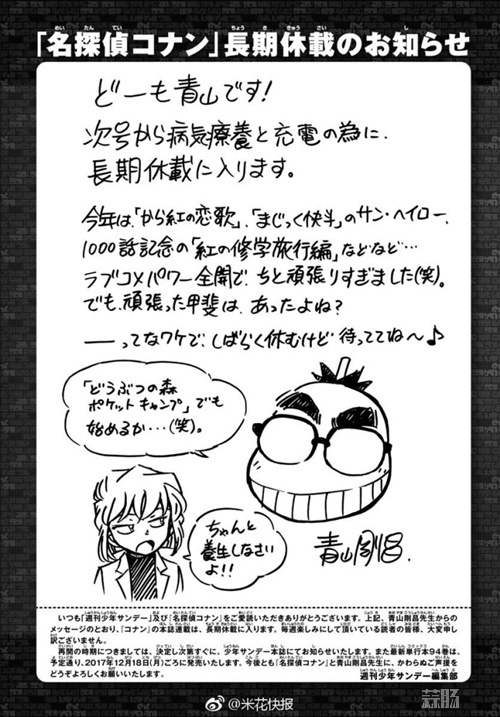 「名探偵コナン」長期休載のお知らせ
どーも青山です!
次号から病気療養と充電の為に、
長期休載に入ります。
今年は、「から紅の恋歌」、「まじっく快斗」のサン・ヘイロー、
1000話記念の「紅の修学旅行編」などなど…
ラブコメパワー全開で、ちと頑張りすぎました(笑)。
でも、頑張った甲斐は、あったよね?
――ってなワケで、しばらく休むけど待っててね〜♪
「どうぶつの森
ポケットキャンプ」でも
始めるか…(笑)。
ちゃんと
養生しなさい
よ!!
青山剛昌
いつも「週刊少年サンデー」及び「名探偵コナン」をご愛読いただきありがとうございます。上記、青山剛昌先生からの
メッセージのとおり、『コナン』の本誌連載は、長期休載に入ります。毎週楽しみにして頂いている読者の皆様、大変申し
訳ございません。
再開の時期につきましては、決定し次第すぐに、少年サンデー本誌にてお知らせいたします。また最新単行本94巻は、
予定通り、2017年12月18日(月)ごろに発売いたします。今後とも「名探偵コナン」と青山剛昌先生に、かわらぬご声援を
どうぞよろしくお願いいたします。
週刊少年サンデー編集部
@米花快报
蒜肠